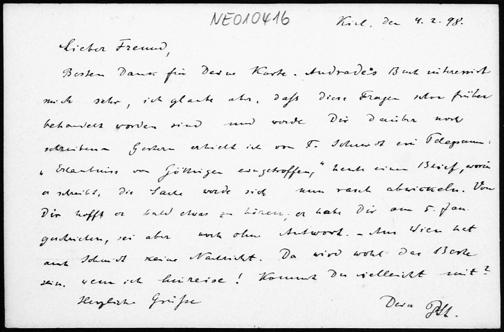 NE010416
Kiel, den 4. 2. 98.
Lieber Freund,
Besten Dank für Deine Karte. Andrade's Buch interessirt
mich sehr, ich glaube aber, daß diese Fragen schon früher
behandelt worden sind und werde Dir darüber noch
schreiben. Gestern erhielt ich von F. Schmidt ein Telegramm:
"Erlaubniss von Göttingen eingetroffen," heute einen Brief, worin
er schreibt, die Sache werde sich nun rasch abwickeln. Von
Dir hofft er bald etwas zu hören; er habe Dir am 5. Jan.
geschrieben, sei aber noch ohne Antwort. – Aus Wien hat
auch Schmidt keine Nachricht. Da wird wohl das Beste
sein, wenn ich hinreise! Kommst Du vielleicht mit?
Herzliche Grüße
Dein